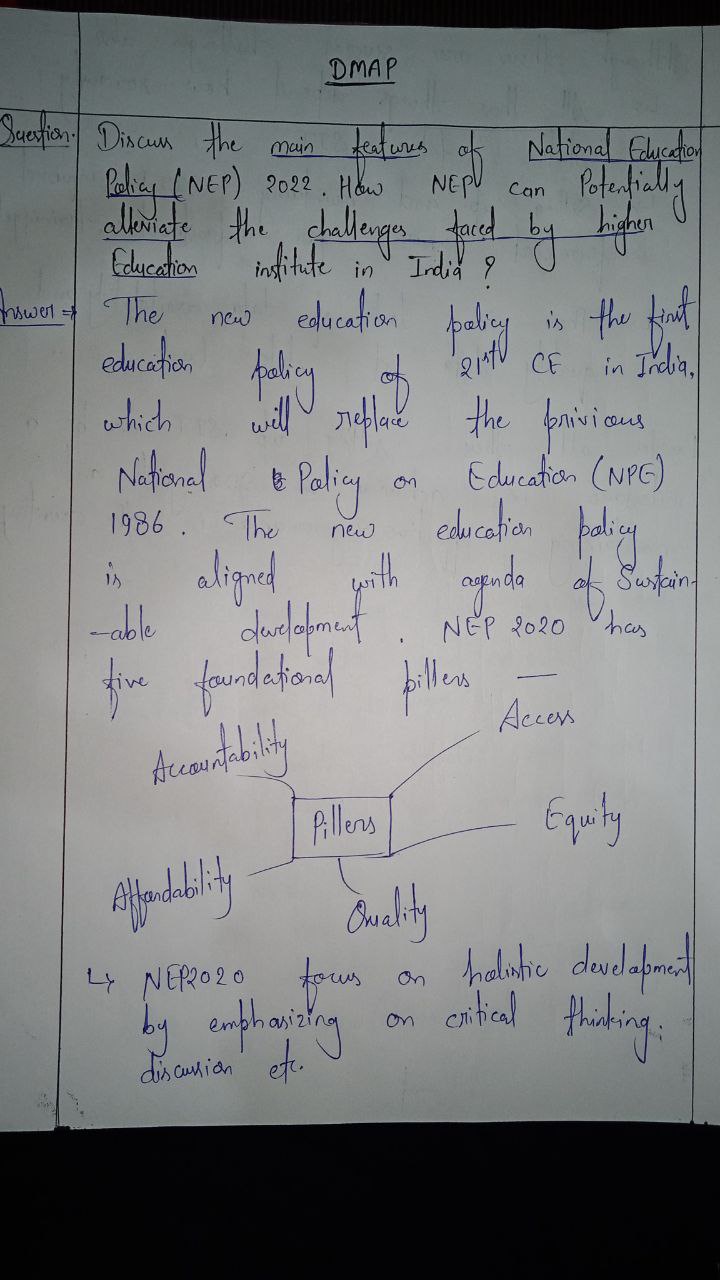 DMAP
Question. Discuss the main features of National Education
Policy (NEP) 2022. How NEP can Potentially
alleviate the challenges faced by higher
Education institute in India ?
Answer ⇒ The new education policy is the first
education policy of 21st CE in India,
which will replace the privious
National Policy on Education (NPE)
1986. The new education policy
is aligned with agenda of Sustain-
-able development. NEP 2020 has
five foundational pillers —
Access
Accountability
Pillers
Equity
Affordability
Quality
↳ NEP2020 focus on holistic development
by emphasizing on critical thinking.
discussion etc.